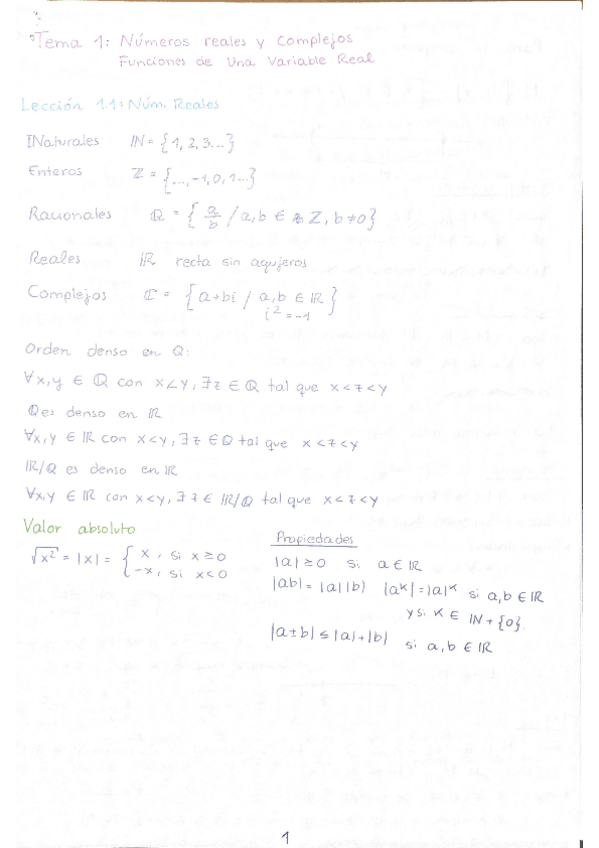 Tema 1: Números reales y Complejos
Funciones de Una Variable Real
Lección 1.1: Núm. Reales
INaturales IN = {1, 2, 3...}
Enteros Z = {..., -1, 0, 1...}
Racionales Q = { a/b / a, b ∈ Z, b ≠ 0}
Reales IR recta sin agujeros
Complejos C = {a+bi / a, b ∈ IR}
i² = -1
Orden denso en Q:
∀x, y ∈ Q con x<y, ∃z ∈ Q tal que x<z<y
Q es denso en IR
∀x, y ∈ IR con x<y, ∃z ∈ Q tal que x<z<y
IR/Q es denso en IR
∀x,y ∈ IR con x<y, ∃z ∈ IR/Q tal que x<z<y
Valor absoluto
√x² = |x| = { x, si x ≥ 0
-x, si x < 0
Propiedades
|a| ≥ 0 si a ∈ IR
|ab| = |a||b| |aᴷ| = |a|ᴷ si a, b ∈ IR
y si K ∈ IN + {0}.
|a±b| ≤ |a|+|b| si a, b ∈ IR
1